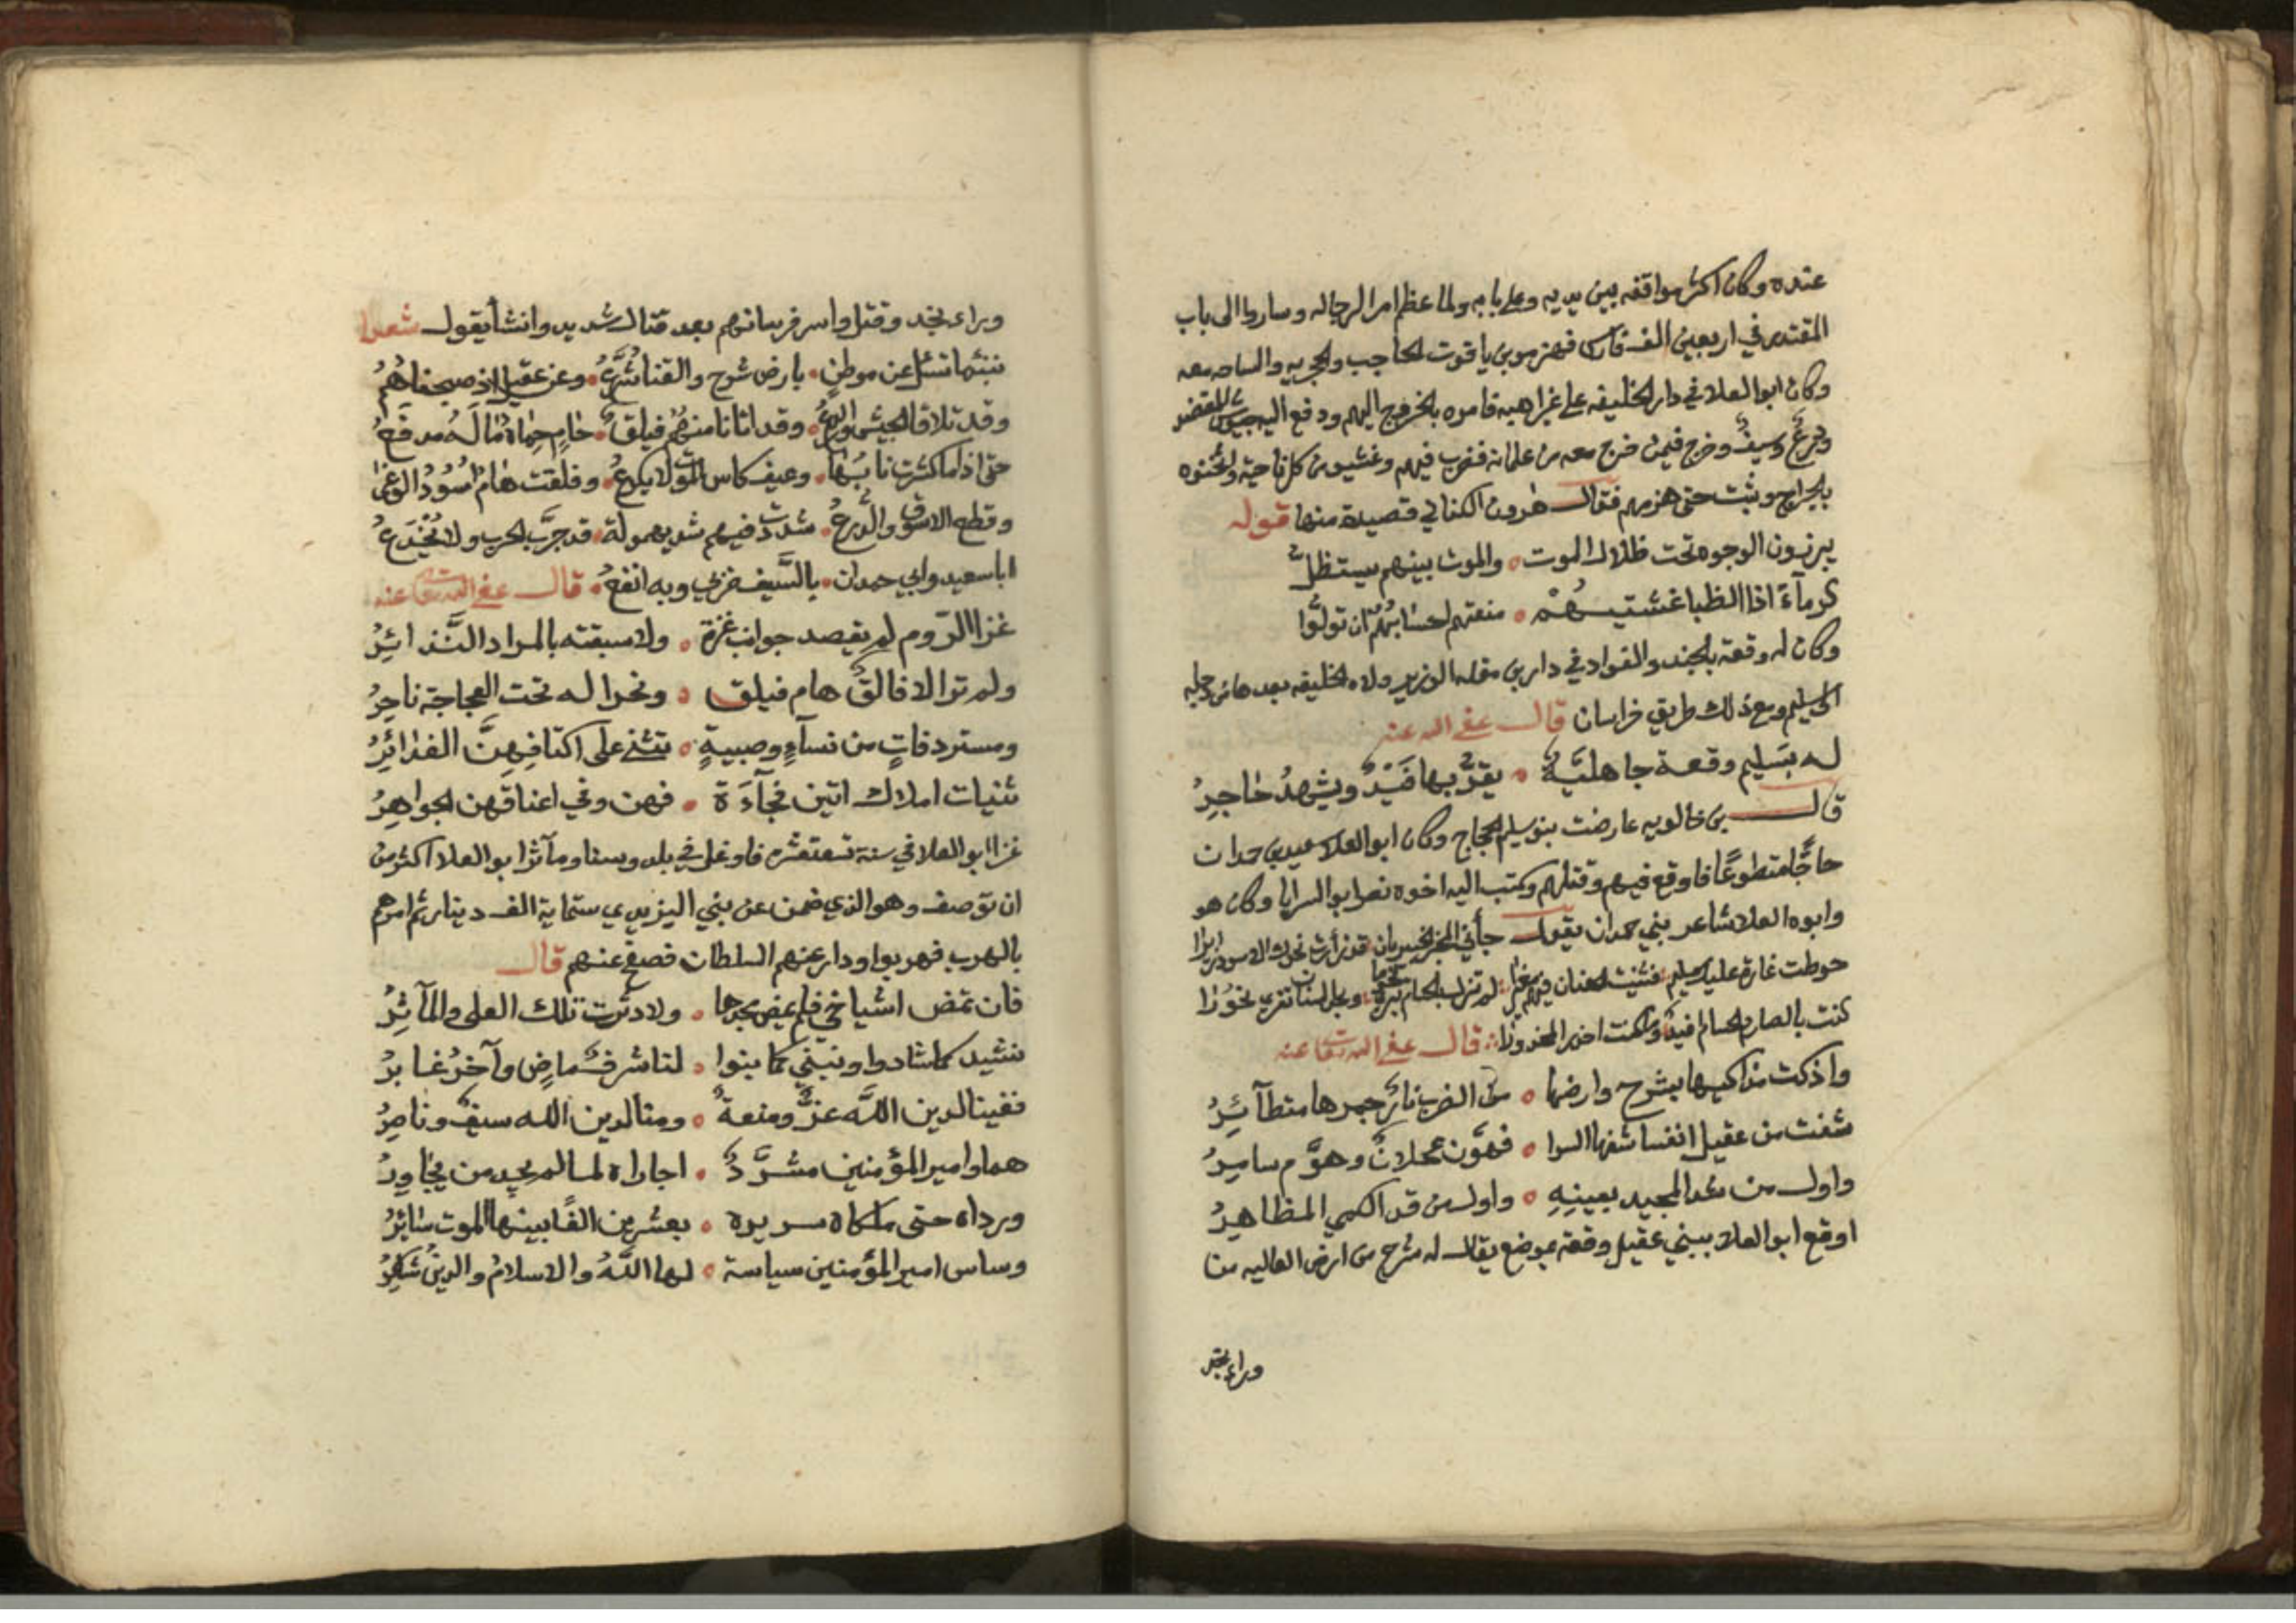 عنده وكان اكثر مواقفه بين يديه وعلى بابه ولما عظم امر الرجاله وساروا الى باب
المقتدر في اربعين الف فارس فهزموا بن ياقوت الحاجب والحجريه والساجيه معه
وكان ابو العلا في دار الخليفه على غير اهبه فامره بالخروج اليهم ودفع اليه جيوش المعتضد
ودرع وسيف وخرج فيمن خرج معه من غلمانه فضرب فيهم وغشيوه من كل ناحية واثخنوه
بالجراح وثبت حتى هزمهم فقال هرون الكناني قصيدة منها قوله
يبرزون الوجوه تحت ظلال الموت والموت بينهم يستظل
كرمآء اذا الظبا غشيتهم منعتهم احسابهم ان تولوا
وكان له وقعة بالجند والقواد في دار بن مقله الوزير ولاه الخليفه بعد
الى سليم ومع ذلك طريق خراسان قال عفى الله عنه
له بسليم وقعة جاهلية يقر بها فيد ويشهد حاجر
قال بن خالويه عارضت بنو سليم الحجاج وكان ابو العلا سعيد بن حمدان
حاجا متطوعا فاوقع فيهم وقتلهم وكتب اليه اخوه نصر ابو السرايا وكان هو
وابوه العلا شاعر بني حمدان يقول جأني المخبر الخبير بان قد زأرت نحوك الاسود زئيرا
حوطت غارة عليك سليم فثنيت العنان فيهم مغيرا لم تزل بالحسام تبري وبحل لسنان تفري نحورا
كنت بالصارم الحسام فيدا وكنت اخير المخذولا قال عفى الله تعا عنه
واذكت مذاكيها بشرح وارضها من الضرب نار جمرها متطآئر
شفت من عقيل انفسا شفها السرا فهون عجلان وهوم سامر
واول من شد المجيد بعينه واول من قد الكمي المظاهر
اوقع ابو العلا ببني عقيل وقعة بموضع يقال له شرح من ارض العاليه من
وراء نجد
وراء نجد وقتل واسر فرسانهم بعد قتال شديد وانشأ يقول شعرا
نبئها تسئل عن موطن بارض شرح والقنا شرع وعن عقيل اذ صبحناهم
وقد تلاقا الجيش والدرع وقد اتانا منهم فيلق حام حماة ما له مدفع
حتى اذا ما كشرت نابها وعيف كاس الموت لا يكرع وفلقت هام اسود الوغى
وقطع الاسوق والدرع شددت فيهم شد ذي صولة قد جرب الحرب ولا يخدع
ابا سعيد وابي حمدان بالسيف ضربي وبه انفع قال عفى الله تعا عنه
غزا الروم لم يقصد جوانب غزة ولا سبقته بالمراد النذائر
ولم تر الا فالق هام فيلق ونحرا له تحت العجاجة ناحر
ومستردفات من نسآء وصبية تثنى على اكتافهن الغدائر
ثنيات املاك اتين فجآءة فهن وفي اعناقهن الجواهر
غزا ابو العلا في سنة تسعتعشره فاوغل في بلد وسنا ومآثر ابو العلا اكثر من
ان توصف وهو الذي ضمن عن بني اليزيدي ستماية الف دينار ثم امرهم
بالهرب فهربوا ودار عنهم السلطان فصفح عنهم قال
فان تمض اشياخي فلم يمض مجدها ولا دثرت تلك العلى والمآثر
نشيد كما شادوا ونبني كما بنوا لنا شرف ماض وآخر غابر
ففينا لدين الله عز ومنعة ومنا لدين الله سيف وناصر
هما وامير المؤمنين مشرد اجاراه لما لم يجد من يجاور
ورداه حتى ملكاه سريره بعشرين الفا بينها الموت سائر
وساس امير المؤمنين سياسة لها الله والاسلام والدين شاكر